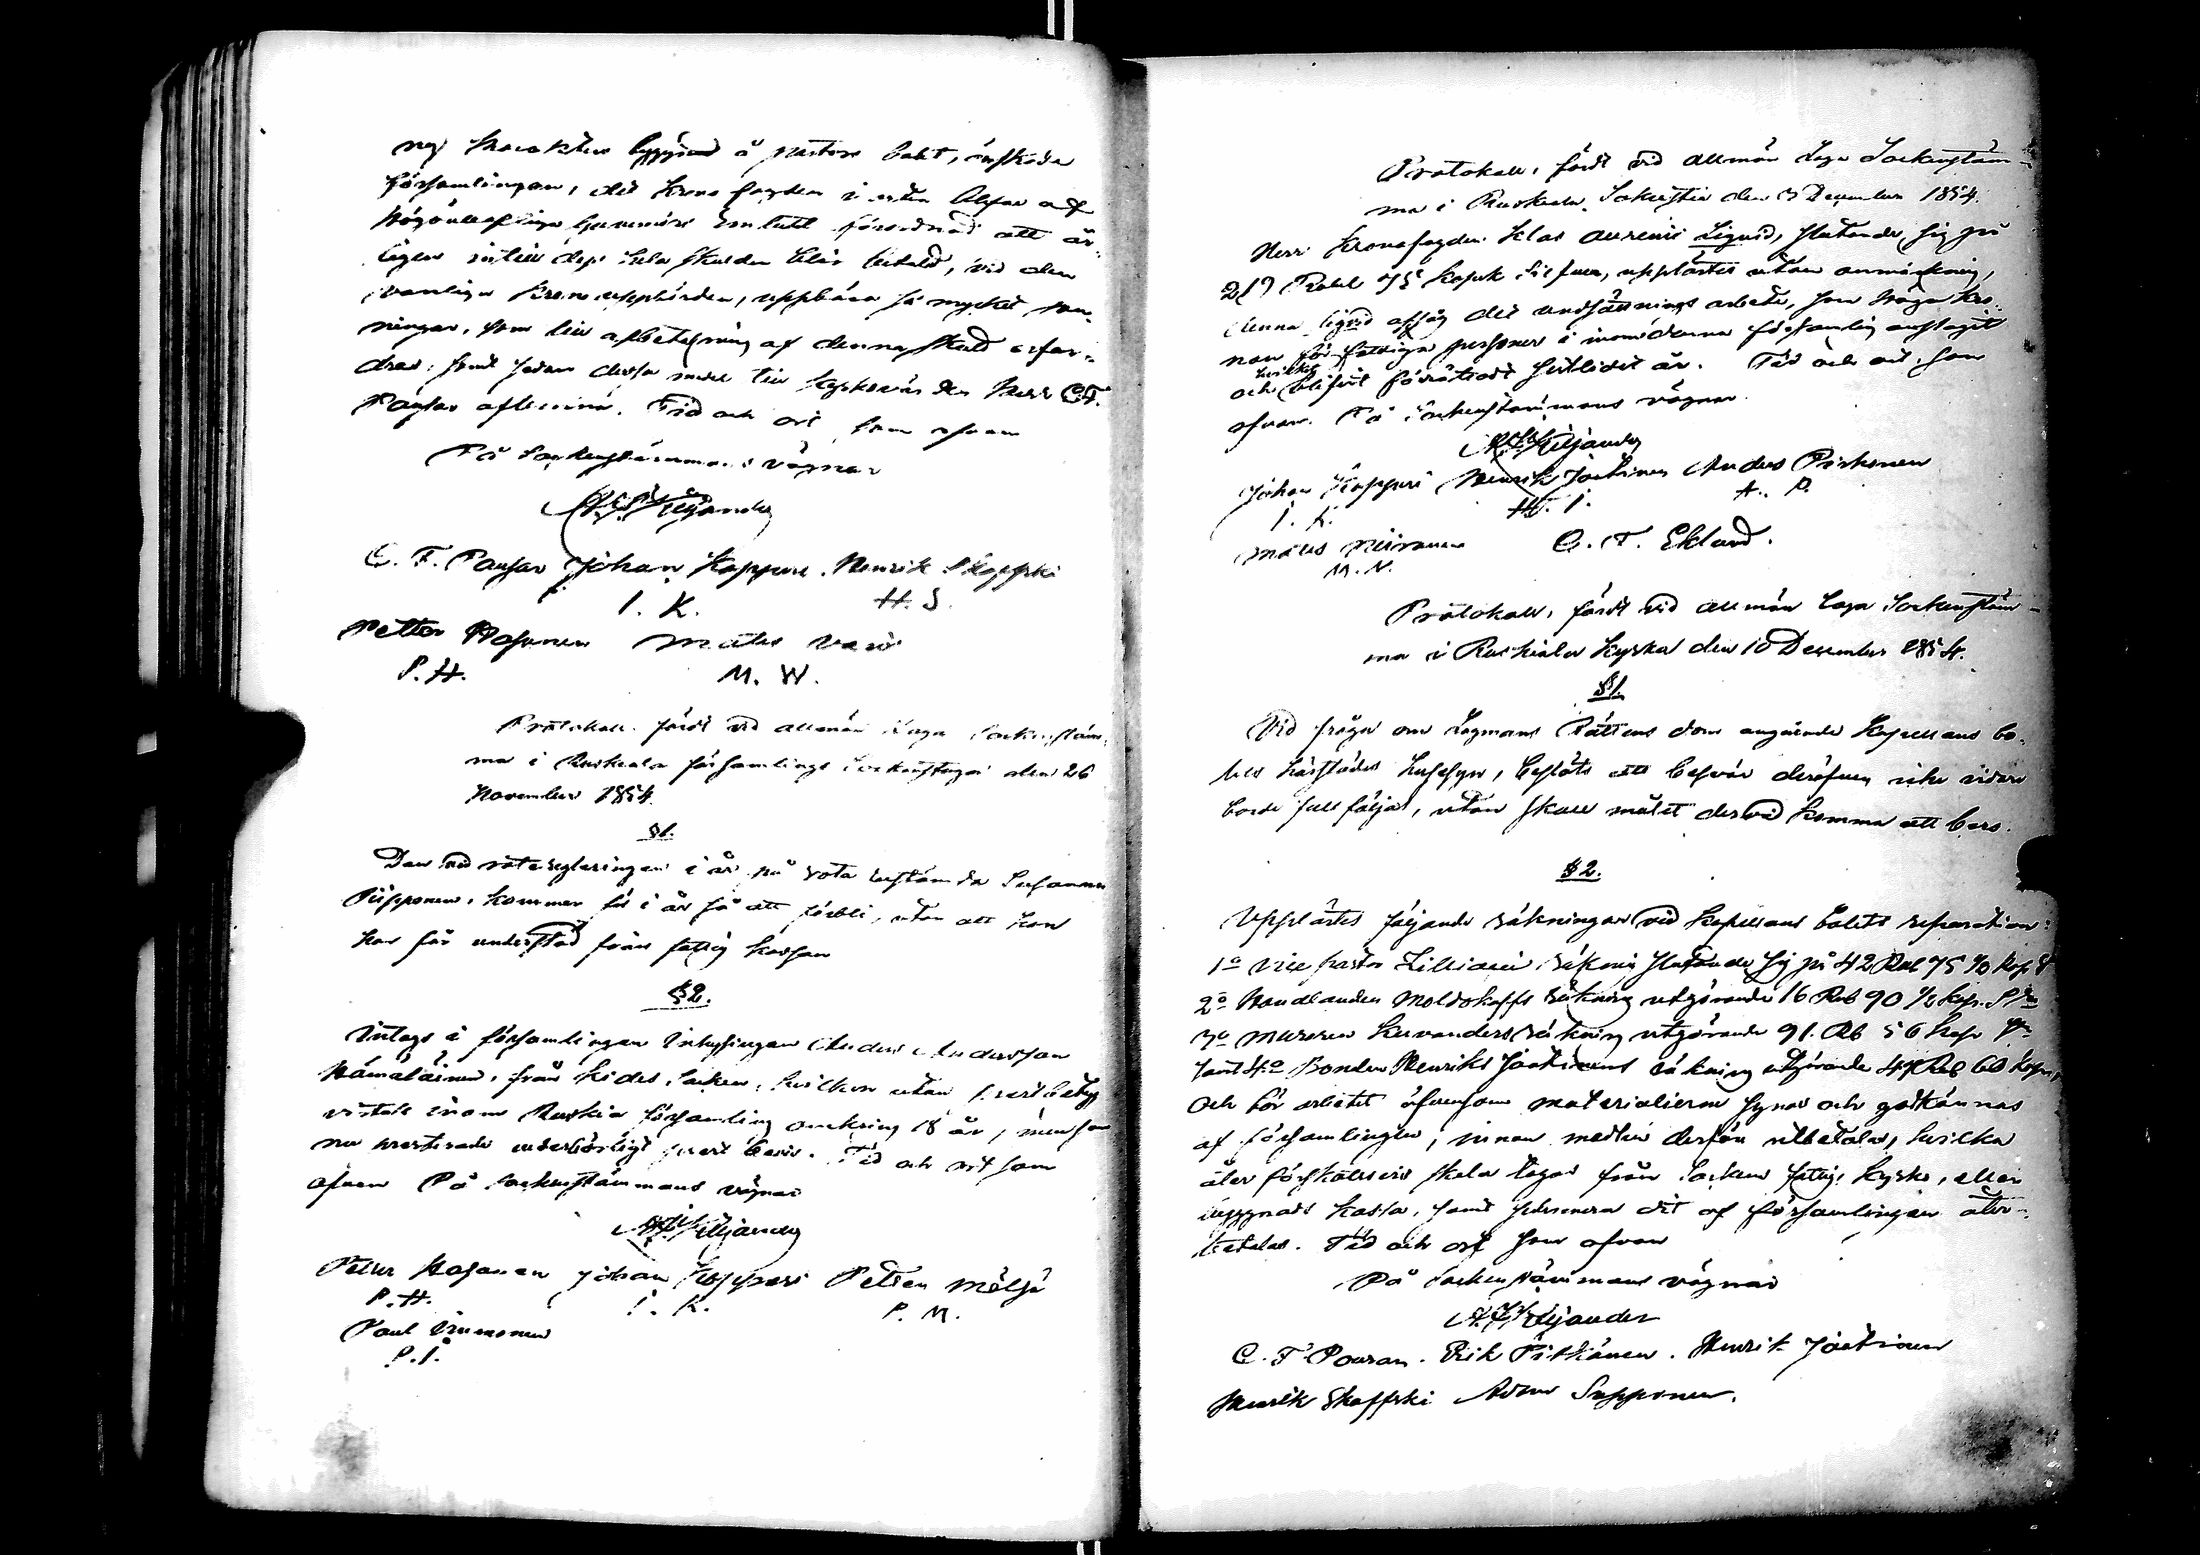 församlingen, det Krono fogden i orten blefve af
Högvällofliga Gouvernörs Embetet förordnad att år-
ligen intill dess hela skulden blir betald, vid den
vanliga Krono uppbörden, uppbära så mycket pen-
ningar, som till afbetalning af denna skuld erfor-
dras, samt sedan dessa medel till Kyrkovärden Herr C.F.
Pousar aflemna. Tid och ort som ofvan
På Sockenstämmans vägnar
Kiljander
C. F. Pousar Johan Kopponen. Henrik Skopski
I. K. H. S.
Petter Hasonen Mats
P. H. M. W.
Protokoll, fördt vid allmän Laga Sockenstäm-
ma i Ruskeala församlings Sockenstuga den 26
November 1854.
§1.
Den vid roteregleringen i år på rota bestämda Susanna
Piipponen, kommer för i år så att förbli, utan att hon
har får understöd från fattig kassan
§2.
Intogs i församlingen Inhysingen Anders Andersson
Hämäläinen, från Kides Socken, hvilken utan prestbetyg
vistats inom Ruskiala församling omkring 18 år, men som
nu presterade vederbörligt prest bevis. Tid och ort som
ofvan På Sockenstämmans vägnar
Kiljander
Petter Hasonen Johan Kopponen Petter Mölsä
P. H. I. K. P. M.
Paul Immonen
P. I.
Protokoll, fördt vid allmän Laga Sockenstäm-
ma i Ruskeala Sakristia den 3 December 1854.
Herr Kronofogden Klas Aurenii Liqvid, slutande sig på
217 Rubel 75 Kopek Silfver, upplästes utan anmärkning,
denna liqvid afsåg det undsättnings arbete, som Höga Kro-
nan för fattiga personer i inom denna församling anslagit
och hvilket blifvit förrättadt. Tid och ort som
ofvan. På Sockenstämmans vägnar
Kiljander
Johan Kopponen Henrik Joutsinen Anders Pirhonen
I. K. H. I. A. P.
Mats Niiranen C. F. Eklund.
M. N.
Protokoll, fördt vid allmän laga Sockenstäm-
ma i Ruskiala Kyrka den 10 December 1854.
§1.
Vid fråga om Lagmans Rättens dom angående Kapellans bo-
lets härstädes husesyn, beslöts att besvär deröfver icke vidare
borde fullföljas, utan skall målet dervid komma att bero.
§2.
Upplästes följande räkningar vid Kapellans bolets reparation:
1o Vice pastor Lilii räkning slutande sig på 42 Rub 75 Kop
2o Handlanden Moldokoffs räkning utgörande 16 Rub 90 1/2 Kop. S
3o Muraren Kuvanders räkning utgörande 91. Rb 56 Kop
samt 4o Bonden Henriks Joutsinens räkning utgörande 47 Rub 60 Kop,
och bör arbetet äfvensom materialierne synas och godkännas
af församlingen, innan medlen derför utbetalas, hvilka
åter förskottsvis skola tagas från Sockens fattig, Kyrko, eller
byggnads kassa, samt sedermera dit af församlingen åter-
betalas. Tid och ort som ofvan
På Sockenstämmans vägnar
Kiljander
C. F. Pousar. Erik Pitkänen. Henrik Joutsinen
Henrik Skopski Adam Supponen.